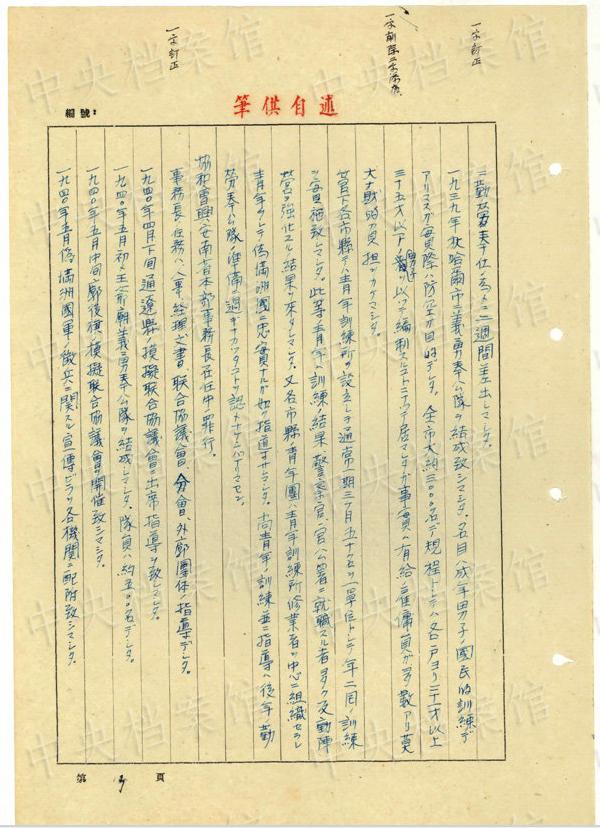 一字訂正
一字訂正
述自供筆
編號：
ニ勤労奉仕ノ為メニ二週間差出シマシタ。
一九三九年秋哈爾市ニ義勇奉公隊ヲ結成致シマシタ。名目ハ成年男子ノ国民的訓練デ
アリマスガ毎實際ハ防空ガ目的デシタ。全市大約三〇〇〇名デ規程トシテハ各戸ヨリ二十才以上
三十五才以下ノ男子ヲ以ツテ編制スルコトニナツテ居マシタガ事實ハ有給ノ準備員ガ多数アリ莫
大ナ財的負担ヲカケマシタ。
管下各市縣デハ青年訓練所ヲ設立シテ通常期三ケ月五十名ヲ一單位トシテ年二回訓練
ヲ毎員施致シマシタ。此等青年ハ訓練ノ結果警察官、官公署ニ就職スル者多ク反動陣
営ヲ強化スル結果ヲ来タシマシタ。又各市縣ノ青年團ハ青年訓練所修業者ヲ中心ニ組織セラレ
青年ヲシテ偽満洲國ニ忠實ナルガ如ク指導サセマシタ。尚青年ノ訓練並ニ指導ハ後年ノ勤
労奉公隊ノ準備過テナカツタコトヲ認メナケレバナリマセン。
協和會興安南省本部事務長在任中ノ罪行。
事務長ノ任務ハ人事、経理、文書、聯合協議會、分會、外廓團体ノ指導デシタ。
一九四〇年四月下旬通遼縣ノ摸擬聯合協議會ニ出席指導ヲ致シマシタ。
一九四〇年五月初メ王爺廟義勇奉公隊ヲ結成シマシタ。隊員ハ約五〇〇名デシタ。
一九四〇年五月中旬郭後旗ノ摸擬聯合協議會ヲ開催致シマシタ。
一九四〇年五月偽満洲國軍ノ徴兵ニ関スル宣傳ビラヲ各機関ニ配附致シマシタ。
第 3 頁
中央档案馆